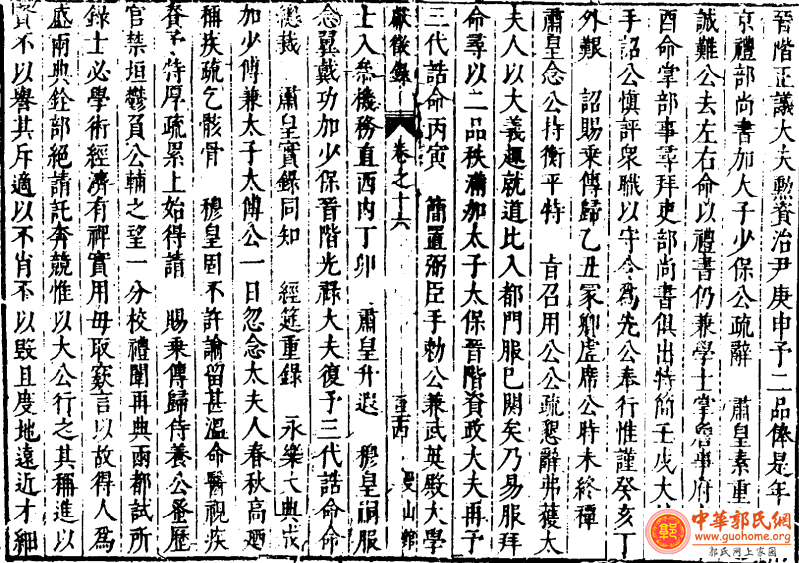 晉階正議大夫勲資治尹庚申予二品俸是年
京禮部尚書加太子少保公疏辭　肅皇素重
誠難公去左右命以禮書仍兼學士掌詹事府
酉命掌部事尋拜吏部尚書俱出特簡壬戌大
手詔公慎評衆職以守令為先公奉行惟謹癸亥丁
外艱　詔賜乘傳歸乙丑冢卿虛席公時未終禫
肅皇念公持衡平特　旨召用公公疏懇辭弗獲大
夫人以大義趣就道比入都門服已闋矣乃易服拜
命尋以二品秩滿加太子太保晉階資政大夫再予
三代誥命丙寅　簡置弼臣手勅公兼武英殿大學
獻徵錄　卷之十六　曼山館
士入叅機務直西内丁卯　肅皇升遐　穆皇嗣服
念翼戴功加少保晉階光祿大夫復予三代誥命命
總裁　肅皇實錄同知　經筵重錄　永樂大典成
加少傅兼太子太傅公一日忽念太夫人春秋高廼
稱疾疏乞骸骨　穆皇固不許諭留甚溫命醫視疾
賚予特厚疏累上始得請　賜乘傳歸侍養公蚤歷
官禁垣鬱負公輔之望一分校禮闈再典兩都試所
錄士必學術經濟有裨實用毋取窾言以故得人為
盛兩典銓部絕請託奔競惟以大公行之其稱進以
賢不以譽其斥適以不肖不以毁且度地遠近才細
中華郭氏網
www.guohome.org
郭氏网上家园
郭